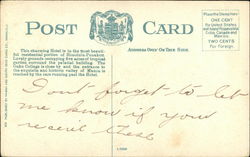 POST CARD
Place the Stamp Here
ONE CENT
For United States
and Island Possessions
Cuba, Canada and
Mexico.
TWO CENTS
For Foreign.
This charming Hotel is in the most beauti-
ful residential portion of Honolulu-Punahou.
Lovely grounds occupying five acres of tropical
garden surround the palatial building. The
Oahu College is close by and the entrance to
the exquisite and historic valley of Manoa is
reached by the cars running past the Hotel.
ADDRESS ONLY ON THIS SIDE.
Dont forget to let
me know if you
receive these